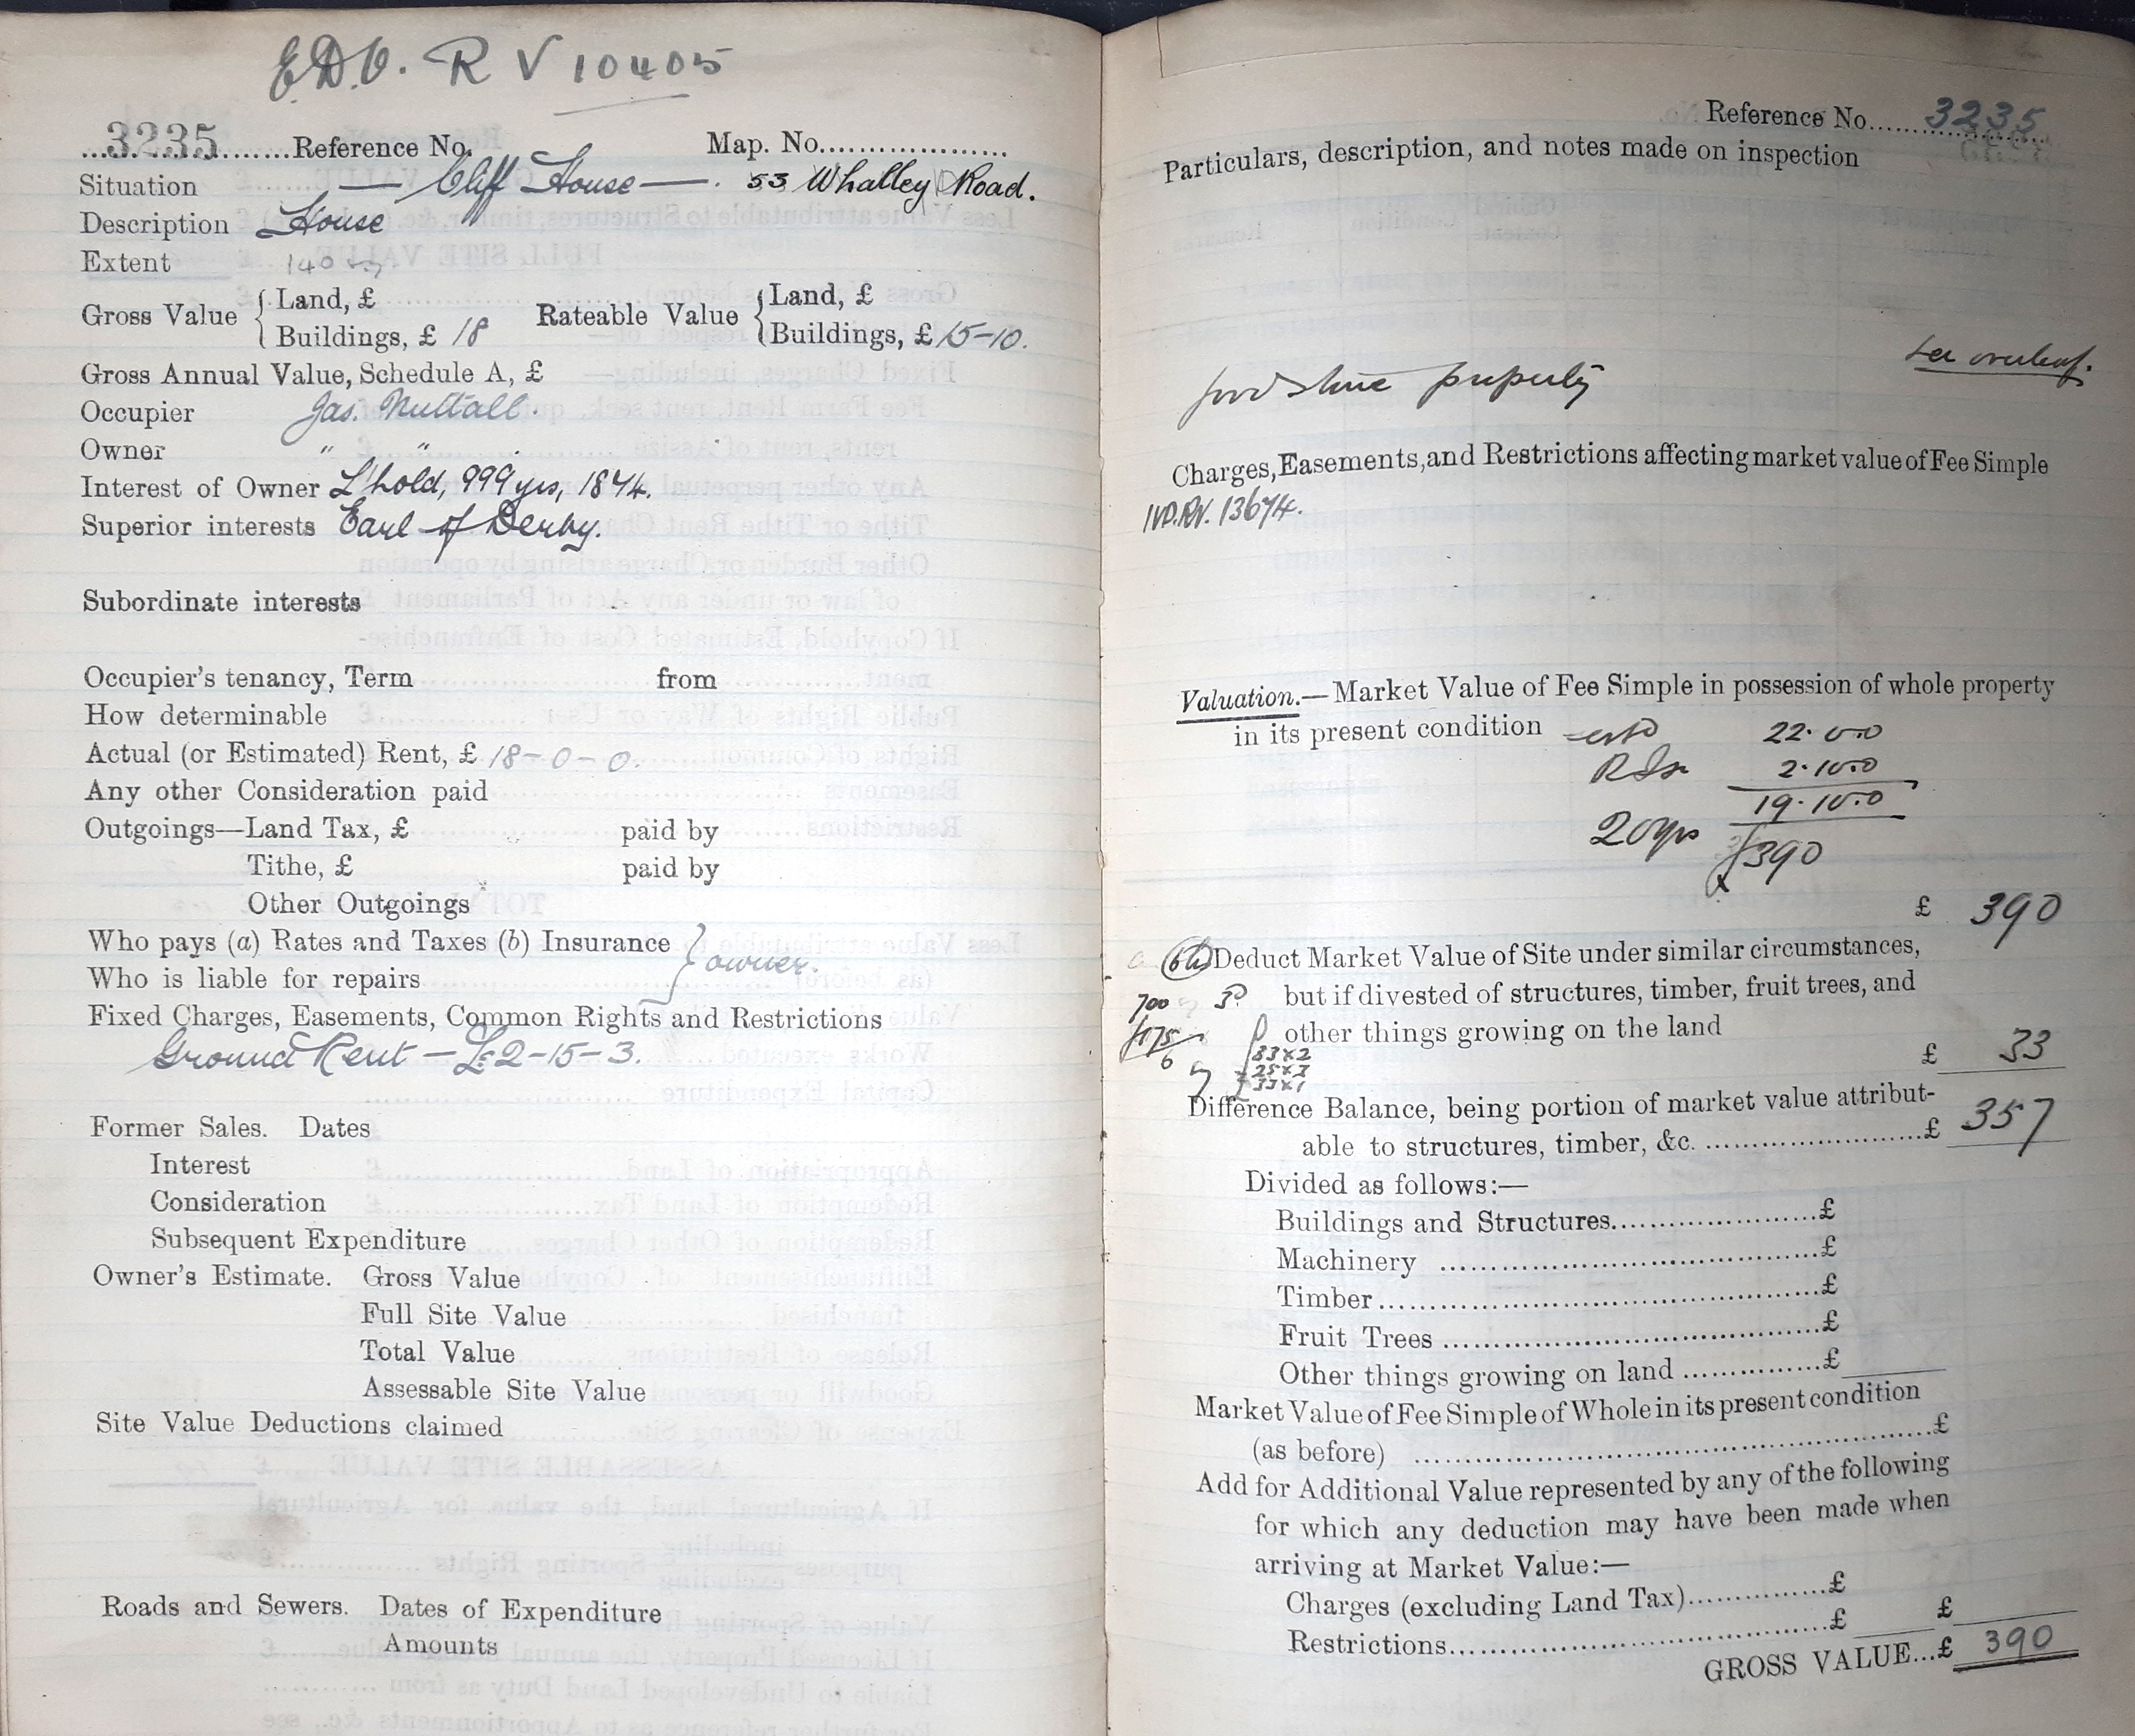 E.D.V. R V 10405
3235 Reference No. Map. No.
Situation — Cliff House —. 53 Whalley Road.
Description House
Extent 140
Gross Value { Land, £
Buildings, £ 18
Rateable Value { Land, £
Buildings, £ 15-10.
Gross Annual Value, Schedule A, £
Occupier Jas. Nuttall.
Owner " "
Interest of Owner L'hold, 999 yrs, 1874.
Superior interests Earl of Derby.
Subordinate interests
Occupier's tenancy, Term from
How determinable
Actual (or Estimated) Rent, £ 18-0-0.
Any other Consideration paid
Outgoings—Land Tax, £ paid by
Tithe, £ paid by
Other Outgoings
Who pays (a) Rates and Taxes (b) Insurance
Who is liable for repairs } owner.
Fixed Charges, Easements, Common Rights and Restrictions
Ground Rent — £2-15-3.
Former Sales. Dates
Interest
Consideration
Subsequent Expenditure
Owner's Estimate. Gross Value
Full Site Value
Total Value
Assessable Site Value
Site Value Deductions claimed
Roads and Sewers. Dates of Expenditure
Amounts
Reference No. 3235
Particulars, description, and notes made on inspection
see overleaf.
good stone property
Charges, Easements, and Restrictions affecting market value of Fee Simple
IVD.RV. 13674.
Valuation.—Market Value of Fee Simple in possession of whole property
in its present condition 22.0.0
2.10.0
19.10.0
20 yrs £390
£ 390
Deduct Market Value of Site under similar circumstances,
700 but if divested of structures, timber, fruit trees, and
£175 other things growing on the land
6 33x2
25x3
33x1
£ 33
Difference Balance, being portion of market value attribut-
able to structures, timber, &c. £ 357
Divided as follows:—
Buildings and Structures £
Machinery £
Timber £
Fruit Trees £
Other things growing on land £
Market Value of Fee Simple of Whole in its present condition
(as before) £
Add for Additional Value represented by any of the following
for which any deduction may have been made when
arriving at Market Value:—
Charges (excluding Land Tax) £
Restrictions £ £
GROSS VALUE...£ 390